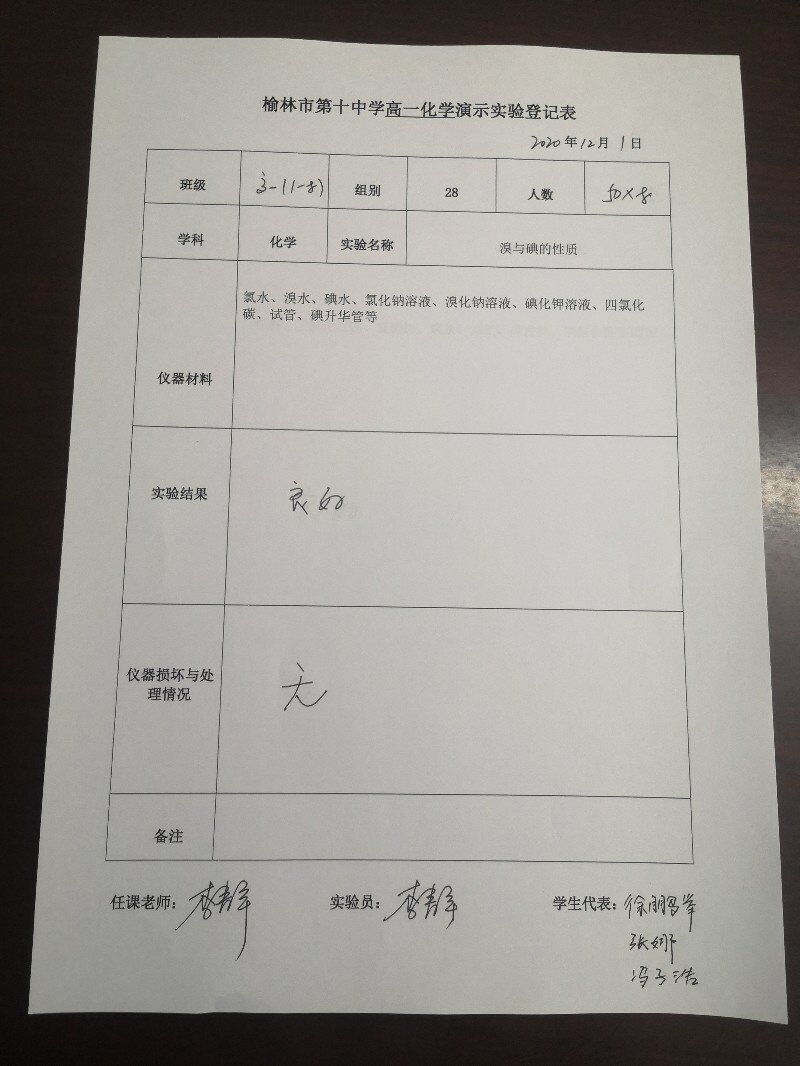 榆林市第十中学高一化学演示实验登记表
2020年12月1日
班级 高一(1-8) 组别 28 人数 50×8
学科 化学 实验名称 溴与碘的性质
氯水、溴水、碘水、氯化钠溶液、溴化钠溶液、碘化钾溶液、四氯化
碳、试管、碘升华管等
仪器材料
实验结果 良好
仪器损坏与处
理情况
无
备注
任课老师: 实验员: 学生代表:徐鹏峰
张娜
冯子浩